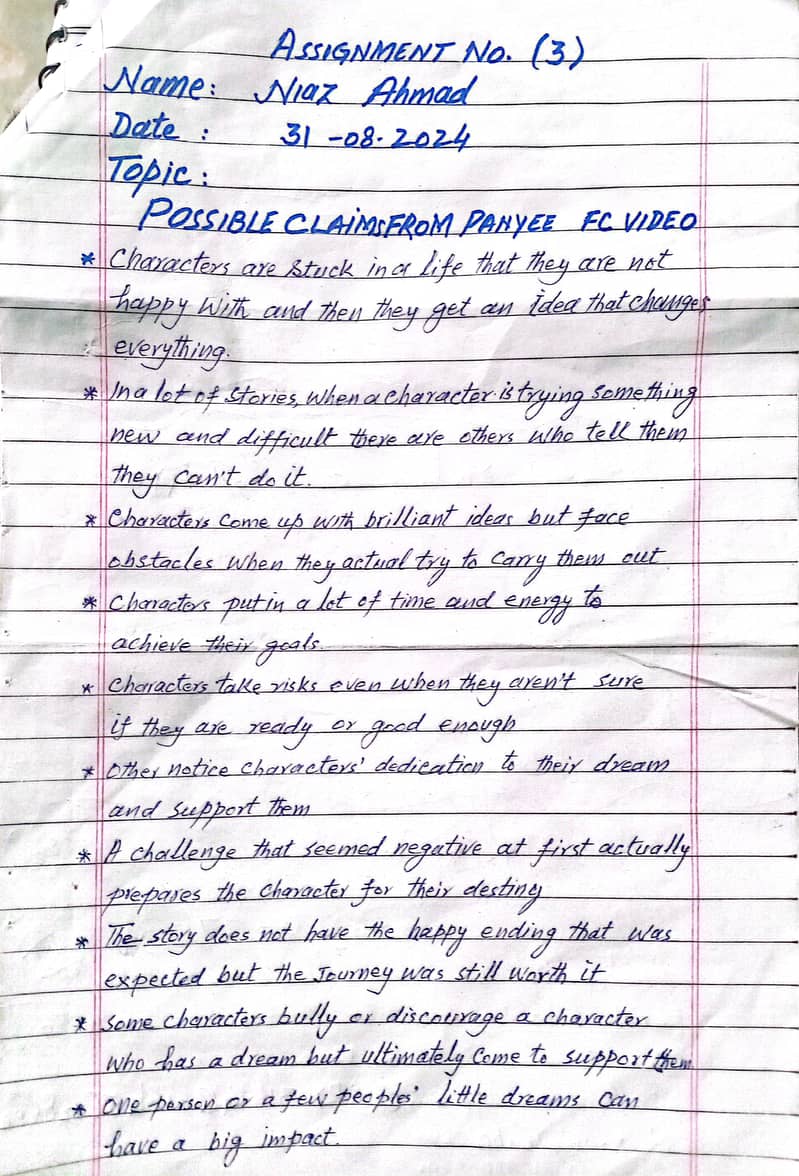 ASSIGNMENT NO. (3)
Name: Niaz Ahmad
Date : 31-08-2024
Topic:
POSSIBLE CLAIMS FROM PANYEE FC VIDEO
* Characters are stuck in a life that they are not
happy with and then they get an idea that changes
everything.
* In a lot of stories, when a character is trying something
new and difficult there are others who tell them
they can't do it.
* Characters come up with brilliant ideas but face
obstacles when they actual try to carry them out
* Characters put in a lot of time and energy to
achieve their goals.
* Characters take risks even when they aren't sure
if they are ready or good enough
* Other notice characters' dedication to their dream
and support them
* A challenge that seemed negative at first actually
prepares the character for their destiny
* The story does not have the happy ending that was
expected but the Journey was still worth it
* Some characters bully or discourage a character
who has a dream but ultimately come to support them
* One person or a few peoples' little dreams can
have a big impact.